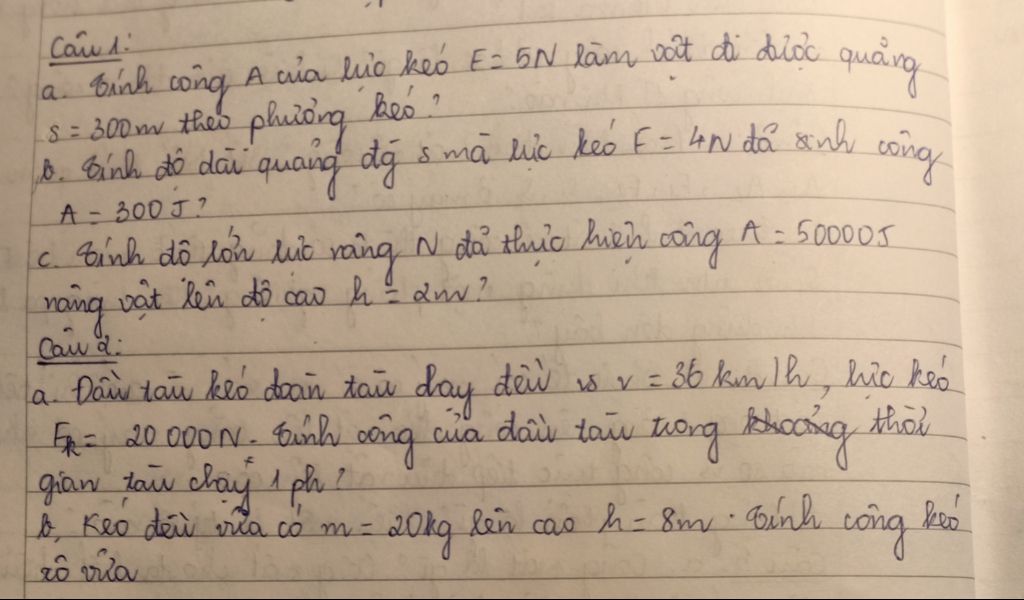 Câu 1:
a. Tính công A của lực kéo F = 5N làm vật đi được quãng
s = 300m theo phương kéo?
b. Tính độ dài quãng đg s mà lực kéo F = 4N đã sinh công
A = 300J?
c. Tính độ lớn lực nâng N đã thực hiện công A = 50000J
nâng vật lên độ cao h = 2m?
Câu 2:
a. Đầu tàu kéo đoàn tàu chạy đều vs v = 36 km/h, lực kéo
Fk = 20 000N. Tính công của đầu tàu trong khoảng thời
gian tàu chạy 1 ph?
b. Kéo đều vữa có m = 20kg lên cao h = 8m. Tính công kéo
xô vữa